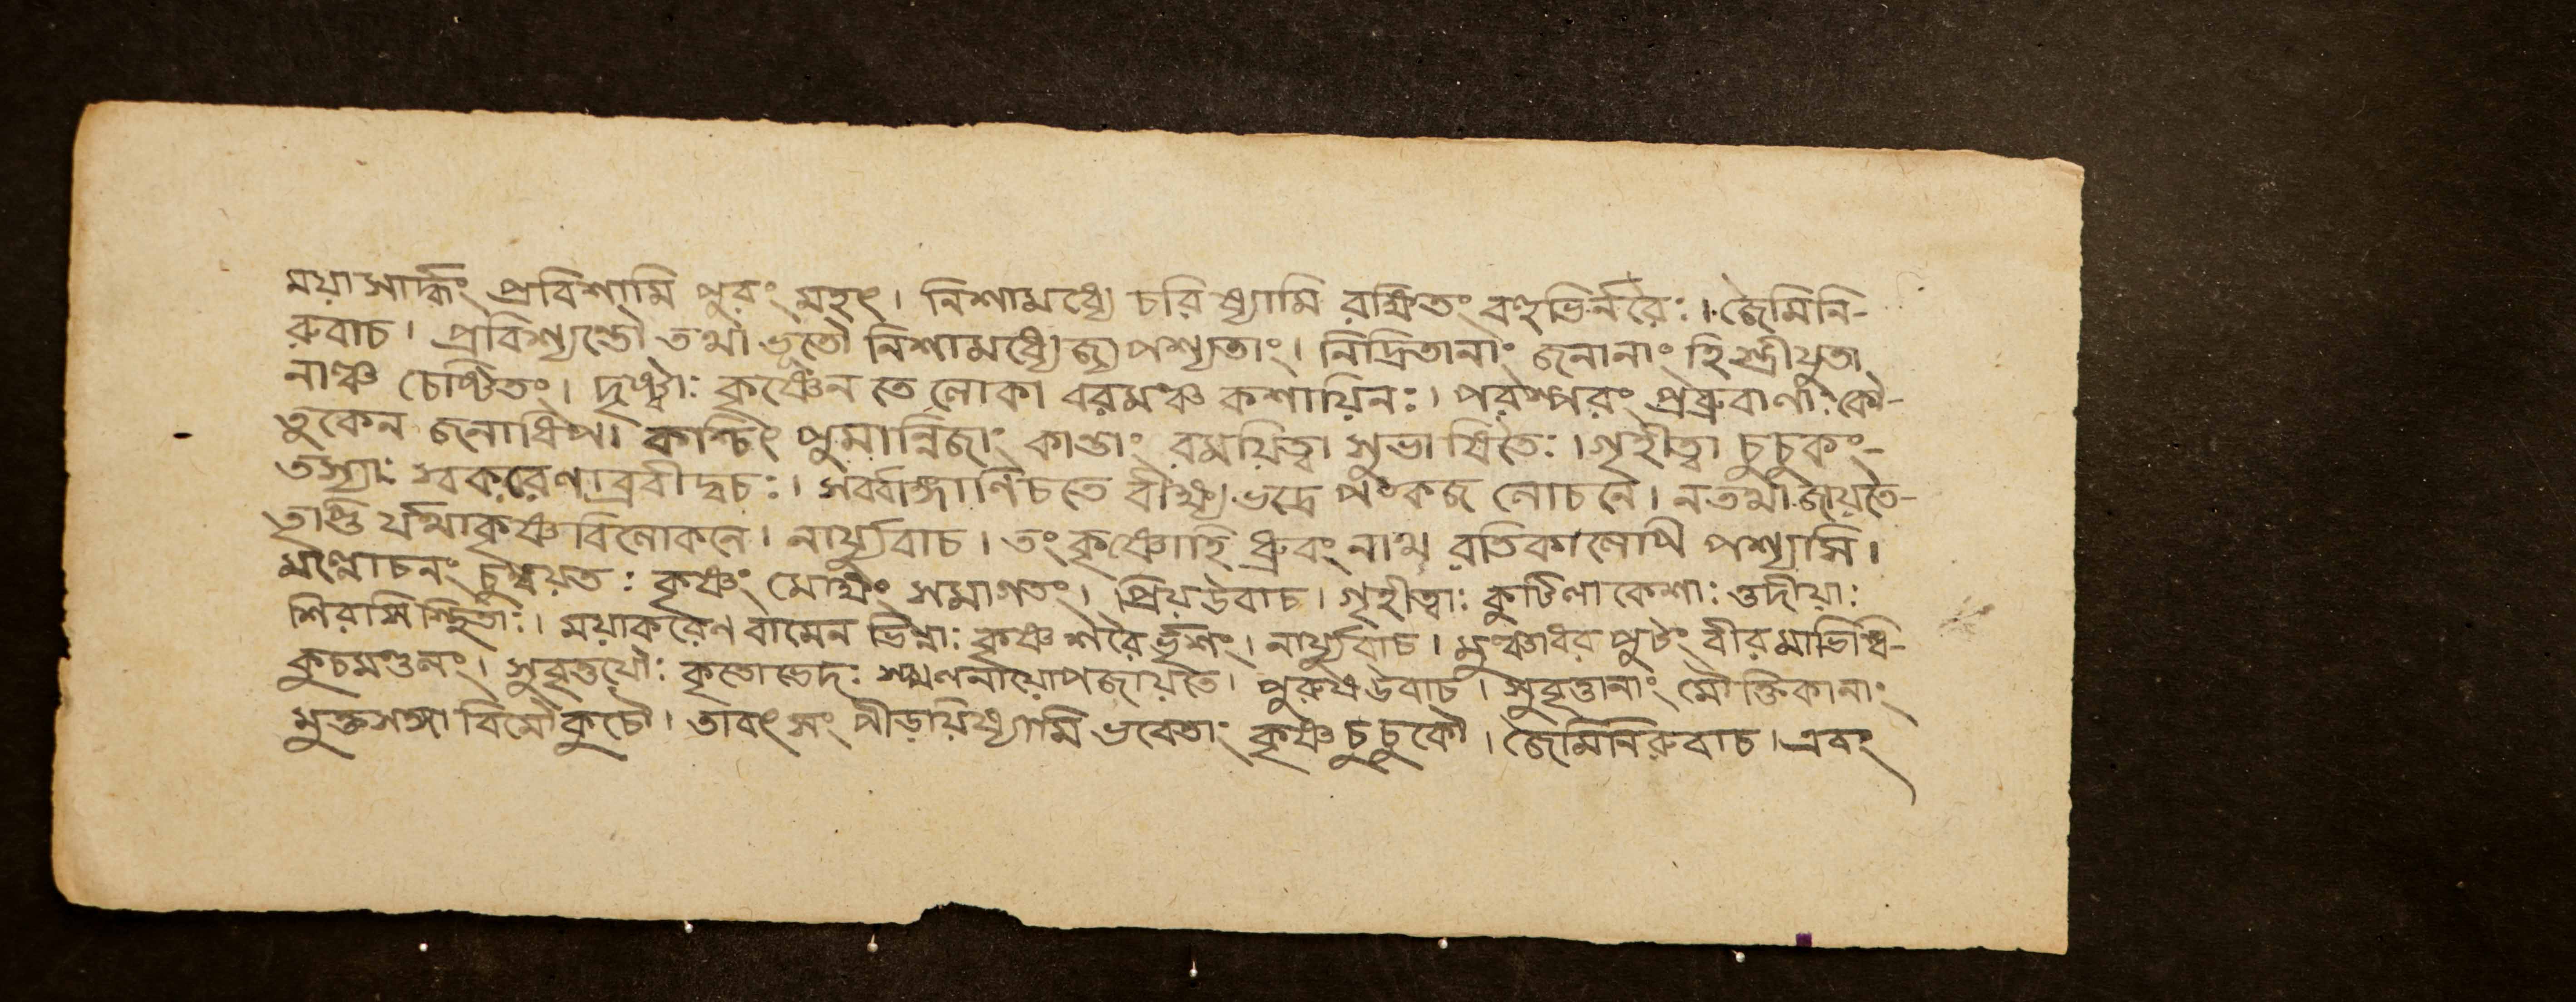 ময়া সার্দ্ধং প্রবিশামি পুরং মহৎ। নিশামধ্যে চরিষ্যামি রক্ষিতং বহুভির্নরৈঃ। জৈমিনি-
রুবাচ। প্রবিশ্যন্তৌ তথা ভূতৌ নিশামধ্যে পশ্যতাং। নিদ্রিতানাং জনানাং হি স্ত্রীযুতা
নাঞ্চ চেষ্টিতং। দৃষ্ট্বাঃ কৃষ্ণেন তে লোকা বরমঞ্চ কশায়িনঃ। পরস্পরং প্রব্রুবাণাঃ কৌ-
তুকেন জনাধিপ। কাশ্চিৎ পুমান্নিজাং কান্তাং রময়িত্বা সুভাষিতৈঃ। গৃহীত্বা চুচুকং-
তস্যাঃ স্বকরেণাব্রবীদ্বচঃ। সর্ব্বাঙ্গানি চ তে বীক্ষ্য ভদ্রে পংকজ লোচনে। ন তথা জায়তে-
যথা কৃষ্ণ বিলোকনে। নার্য্যুবাচ। তং কৃষ্ণোহি ধ্রুবং নাথ রতিকালেপি পশ্যসি।
মল্লোচনং চুম্বয়তঃ কৃষ্ণং মোক্ষং সমাগতং। প্রিয়উবাচ। গৃহীত্বাঃ কুটিলা কেশাঃ ত্বদীয়াঃ
শিরসিস্থিতাঃ। ময়াকরেণ বামেন ভিন্নাঃ কৃষ্ণ শরৈর্ভৃশং। নার্য্যুবাচ। মুঞ্চাধর পুটং বীর মাভিন্ধি-
কুচমণ্ডলং। সুবৃত্তয়োঃ কৃতোভেদঃ পজায়তে। পুরুষউবাচ। সুবৃত্তানাং মৌক্তিকানাং
মুক্তসঙ্গা বিমৌ কুচৌ। তাবৎ সং পীড়ায়িষ্যামি ভবেতাং কৃষ্ণ চুচুকৌ। জৈমিনিরুবাচ। এবং